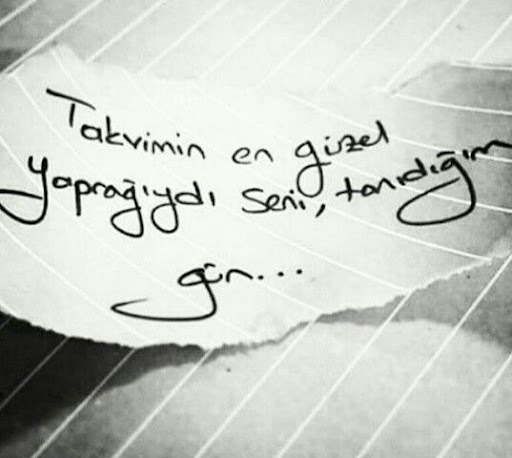 Takvimin en güzel
yaprağıydı seni, tanıdığım
gün...